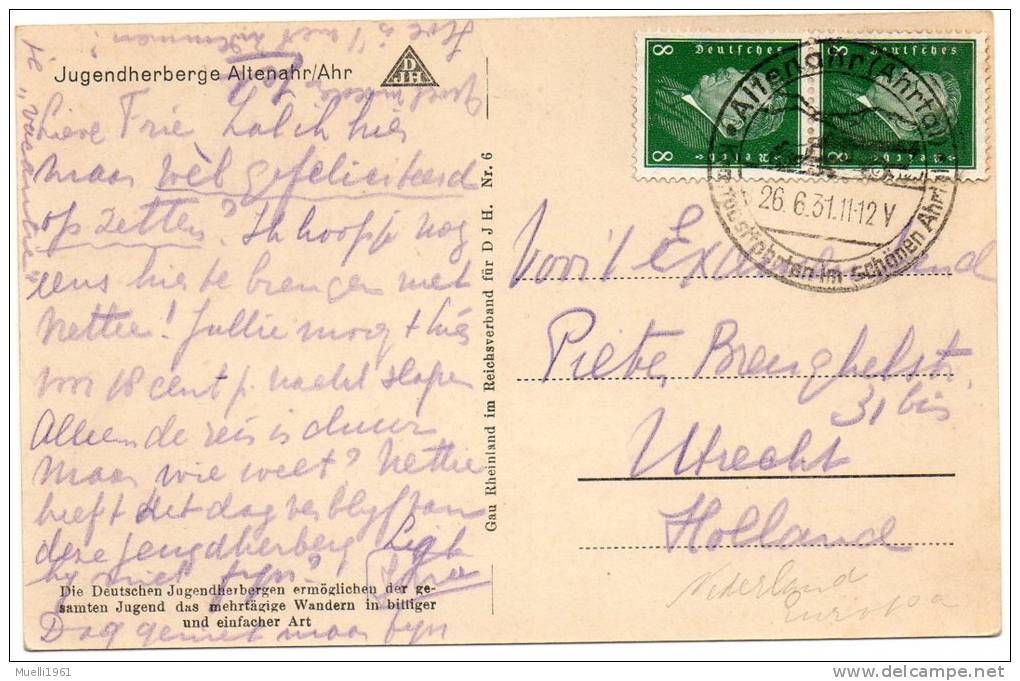 Jugendherberge Altenahr/Ahr
DJH
Lieve Trie Zal ik hier
maar wèl gefeliciteerd
op zetten? Ik hoop je nog
eens hier te brengen met
Nettie! Jullie mogt hier
voor 18 cent p. nacht slapen
Alleen de reis is duur
Maar wie weet? Nettie
heeft het dag verblyf van
deze jeugdherberg. Ligt
hy niet fyn?
Die Deutschen Jugendherbergen ermöglichen der ge-
samten Jugend das mehrtägige Wandern in billiger
und einfacher Art
Dag geniet maar fyn
Gau Rheinland im Reichsverband für DJH. Nr. 6
8 Deutsches Reich 8
8 Deutsches Reich 8
Altenahr (Ahrtal)
26.6.31.11-12 V
im schönen Ahrtal
Pieter Breughelstr.
31 bis
Utrecht
Holland
Nederland
Europa
Muelli1961
delcampe.net